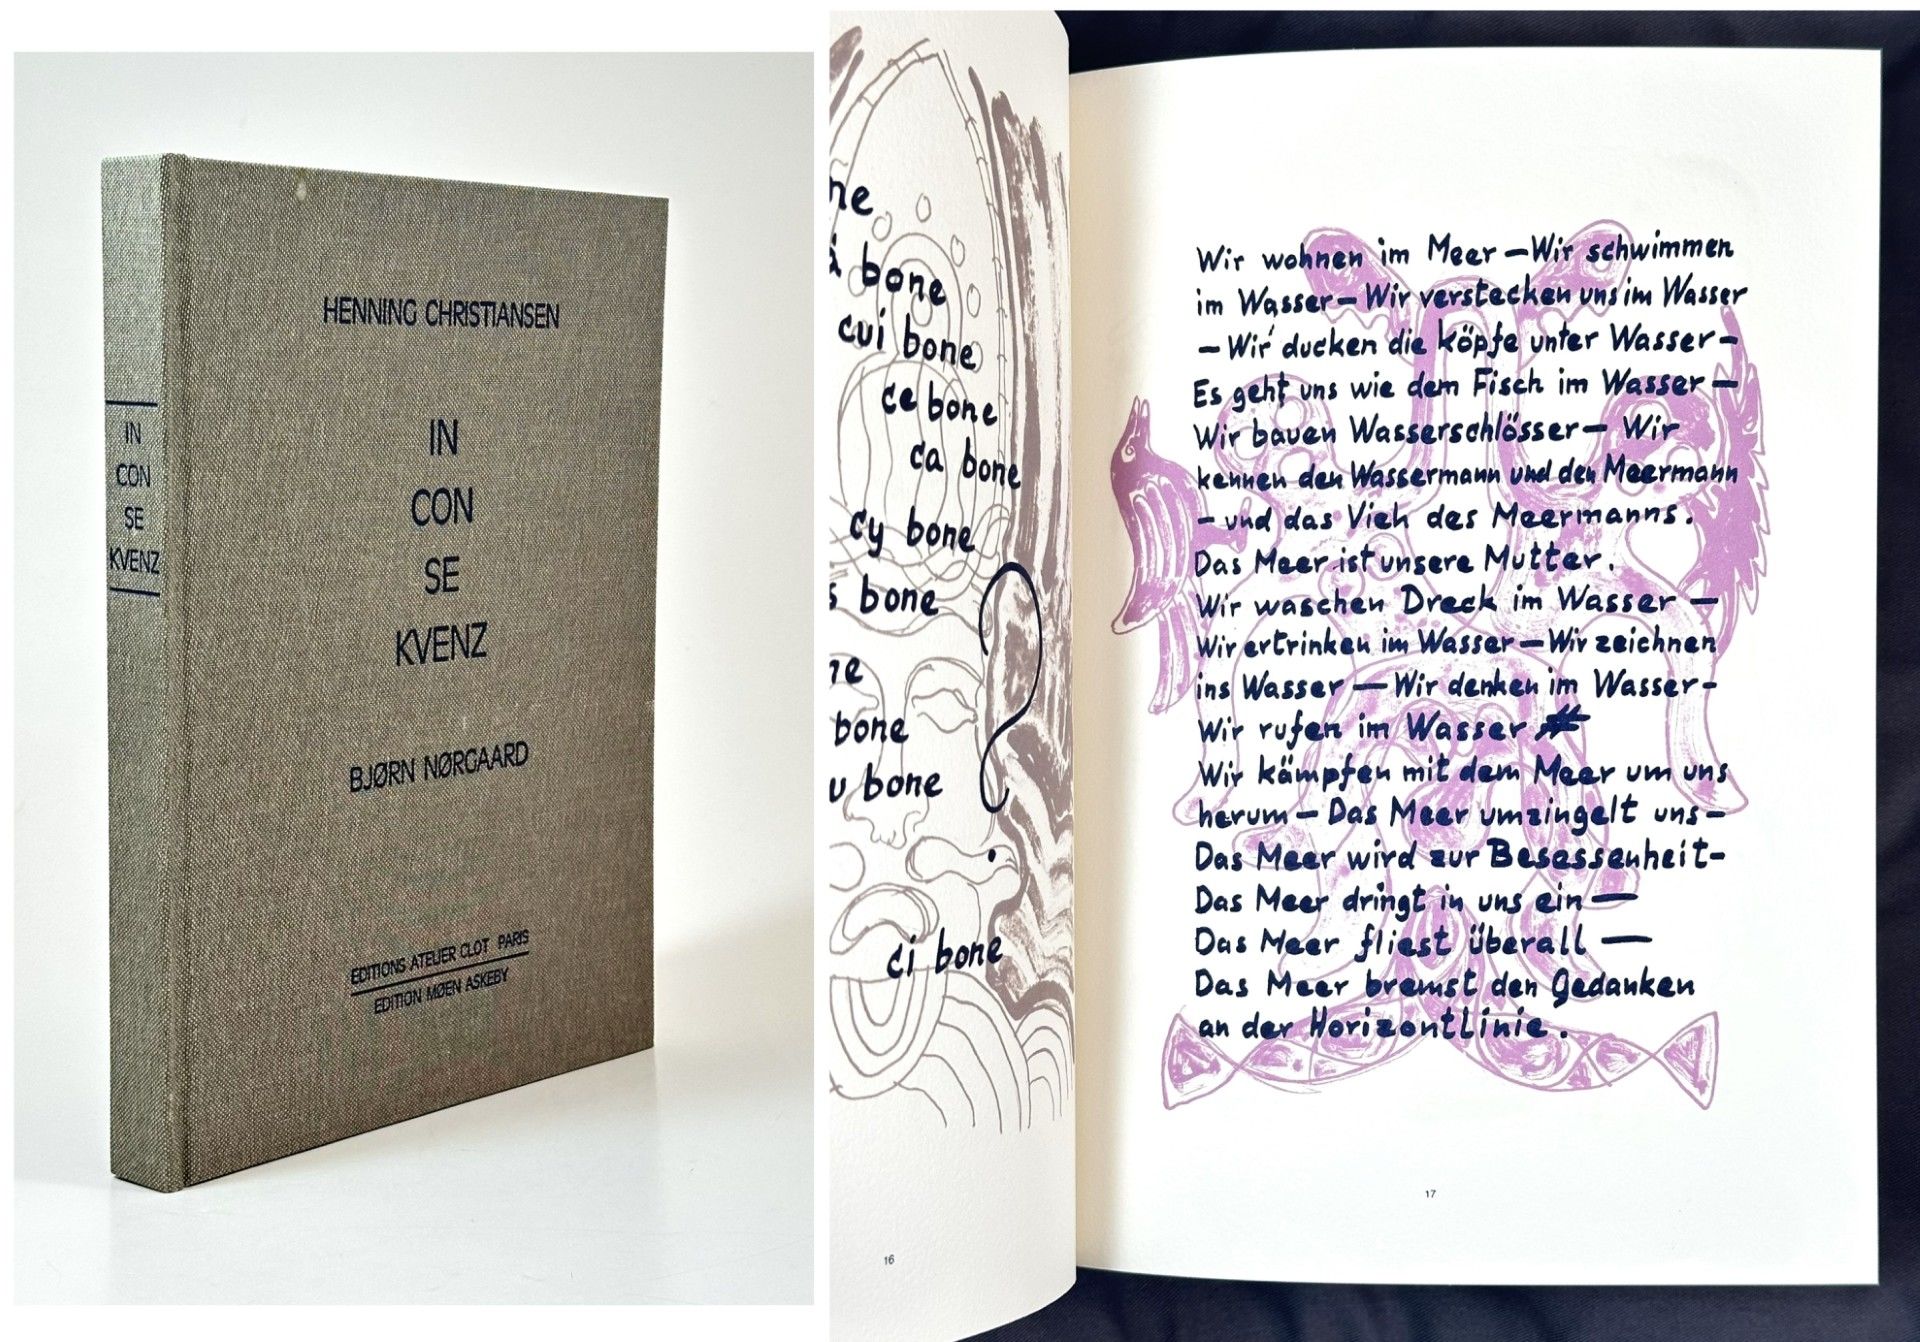 IN
CON
SE
KVENZ
HENNING CHRISTIANSEN
IN
CON
SE
KVENZ
BJØRN NØRGAARD
EDITIONS ATELIER CLOT PARIS
EDITION MØEN ASKEBY
bone
cui bone
ce bone
ca bone
cy bone
bone
bone
bone
ci bone
16
Wir wohnen im Meer – Wir schwimmen
im Wasser – Wir verstecken uns im Wasser
– Wir ducken die köpfe unter Wasser –
Es geht uns wie dem Fisch im Wasser –
Wir bauen Wasserschlösser – Wir
kennen den Wassermann und den Meermann
– und das Vieh des Meermanns.
Das Meer ist unsere Mutter.
Wir waschen Dreck im Wasser –
Wir ertrinken im Wasser – Wir zeichnen
ins Wasser – Wir denken im Wasser –
Wir rufen im Wasser
Wir kämpfen mit dem Meer um uns
herum – Das Meer umzingelt uns –
Das Meer wird zur Besessenheit –
Das Meer dringt in uns ein –
Das Meer fliest überall –
Das Meer bremst den Gedanken
an der Horizontlinie.
17